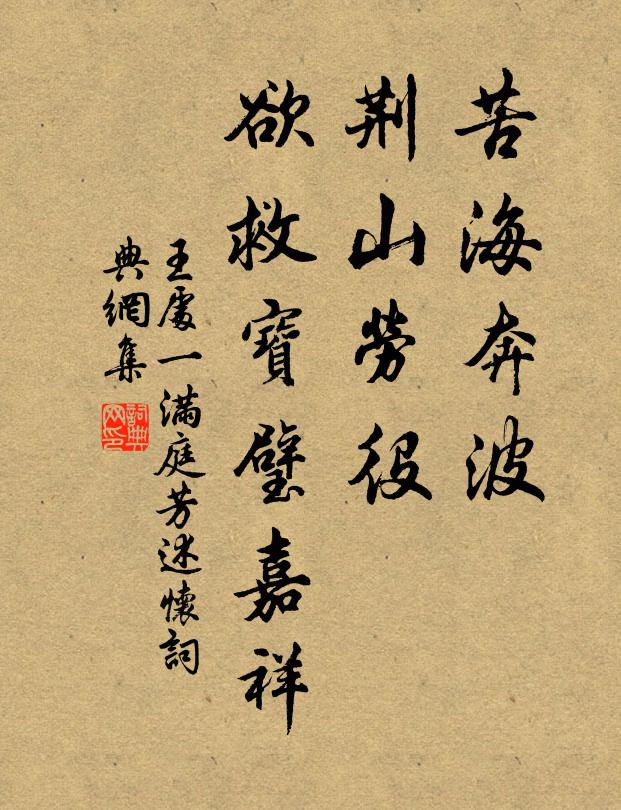 苦海奔波
荆山勞役
欲救寶璧嘉祥
王處一滿庭芳述懷詞
典網集
詞典网印